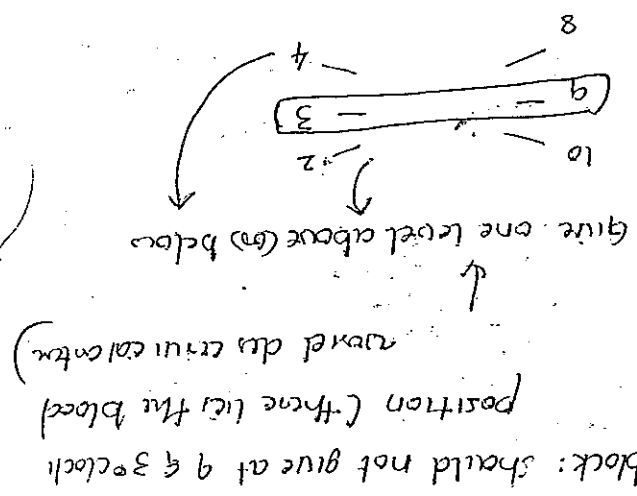 block: should not give at 9 & 3°clock
position (there lies the blood
des cervical
Give one level above (or) below
2 10
3 9
4 8